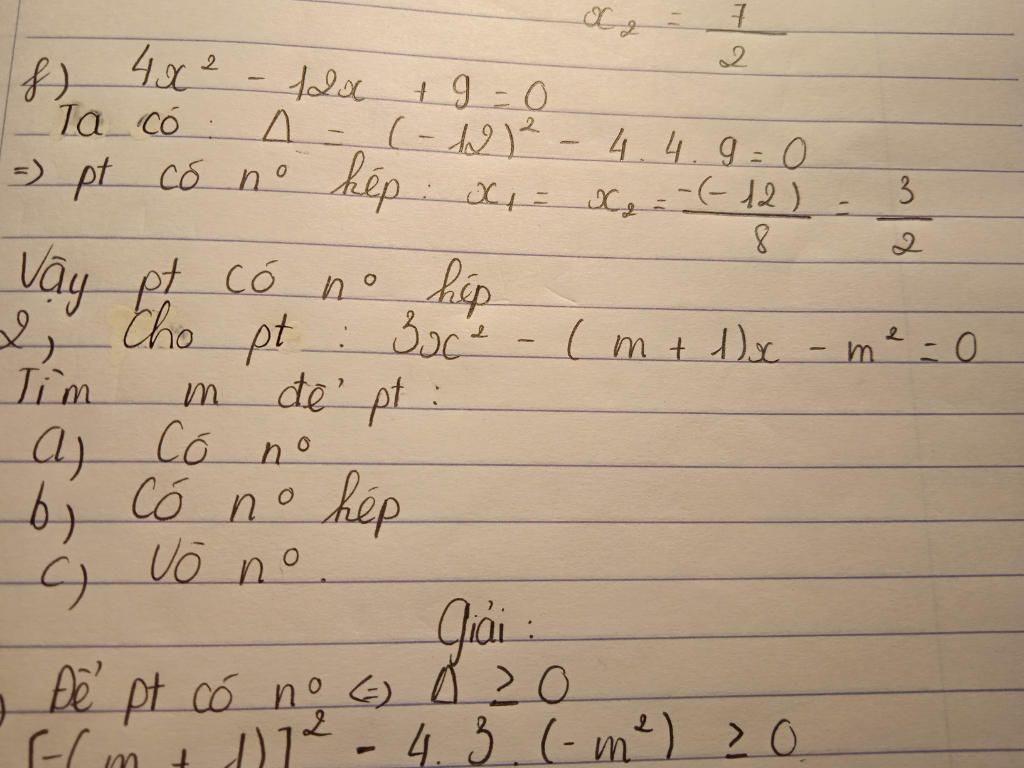 x₂ = 7/2
f) 4x² - 12x + 9 = 0
Ta có : Δ = (-12)² - 4.4.9 = 0
=> pt có nº kép : x₁ = x₂ = -(-12)/8 = 3/2
Vậy pt có nº kép
2, Cho pt : 3x² - (m + 1)x - m² = 0
Tìm m để pt :
a) Có nº
b) Có nº kép
c) Vô nº.
Giải :
) Để pt có nº <=> Δ ≥ 0
[-(m + 1)]² - 4.3.(-m²) ≥ 0